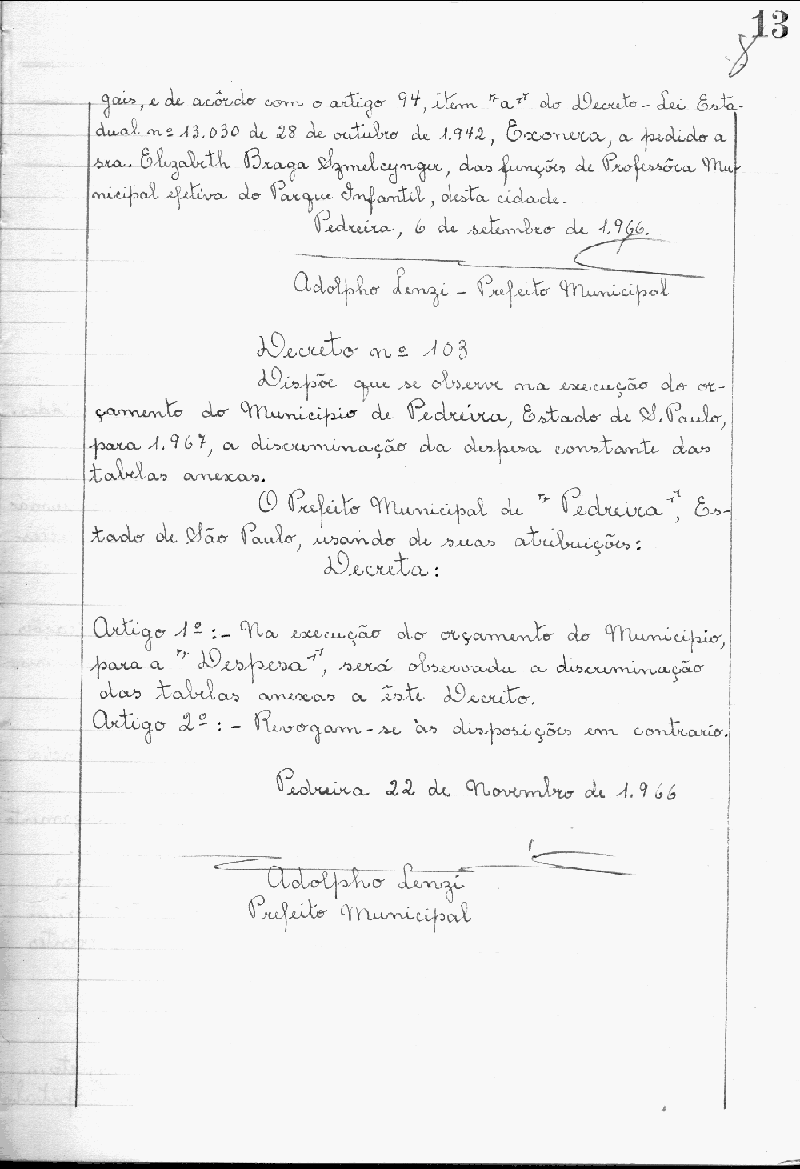 13
gais, e de acôrdo com o artigo 94, item "a" do Decreto-Lei Esta-
dual nº 13.030 de 28 de outubro de 1.942, Exonera, a pedido a
sra. Elizabeth Braga, das funções de Professôra Mu-
nicipal efetiva do Parque Infantil, desta cidade.
Pedreira, 6 de setembro de 1.966.
Adolpho Lenzi - Prefeito Municipal
Decreto nº 103
Dispõe que se observe na execução do or-
çamento do Municipio de Pedreira, Estado de S. Paulo,
para 1.967, a discriminação da despesa constante das
tabelas anexas.
O Prefeito Municipal de "Pedreira", Es-
tado de São Paulo, usando de suas atribuições:
Decreta:
Artigo 1º:- Na execução do orçamento do Municipio,
para a "Despesa", será observada a discriminação
das tabelas anexas a êste Decreto.
Artigo 2º:- Revogam-se às disposições em contrario.
Pedreira 22 de Novembro de 1.966
Adolpho Lenzi
Prefeito Municipal